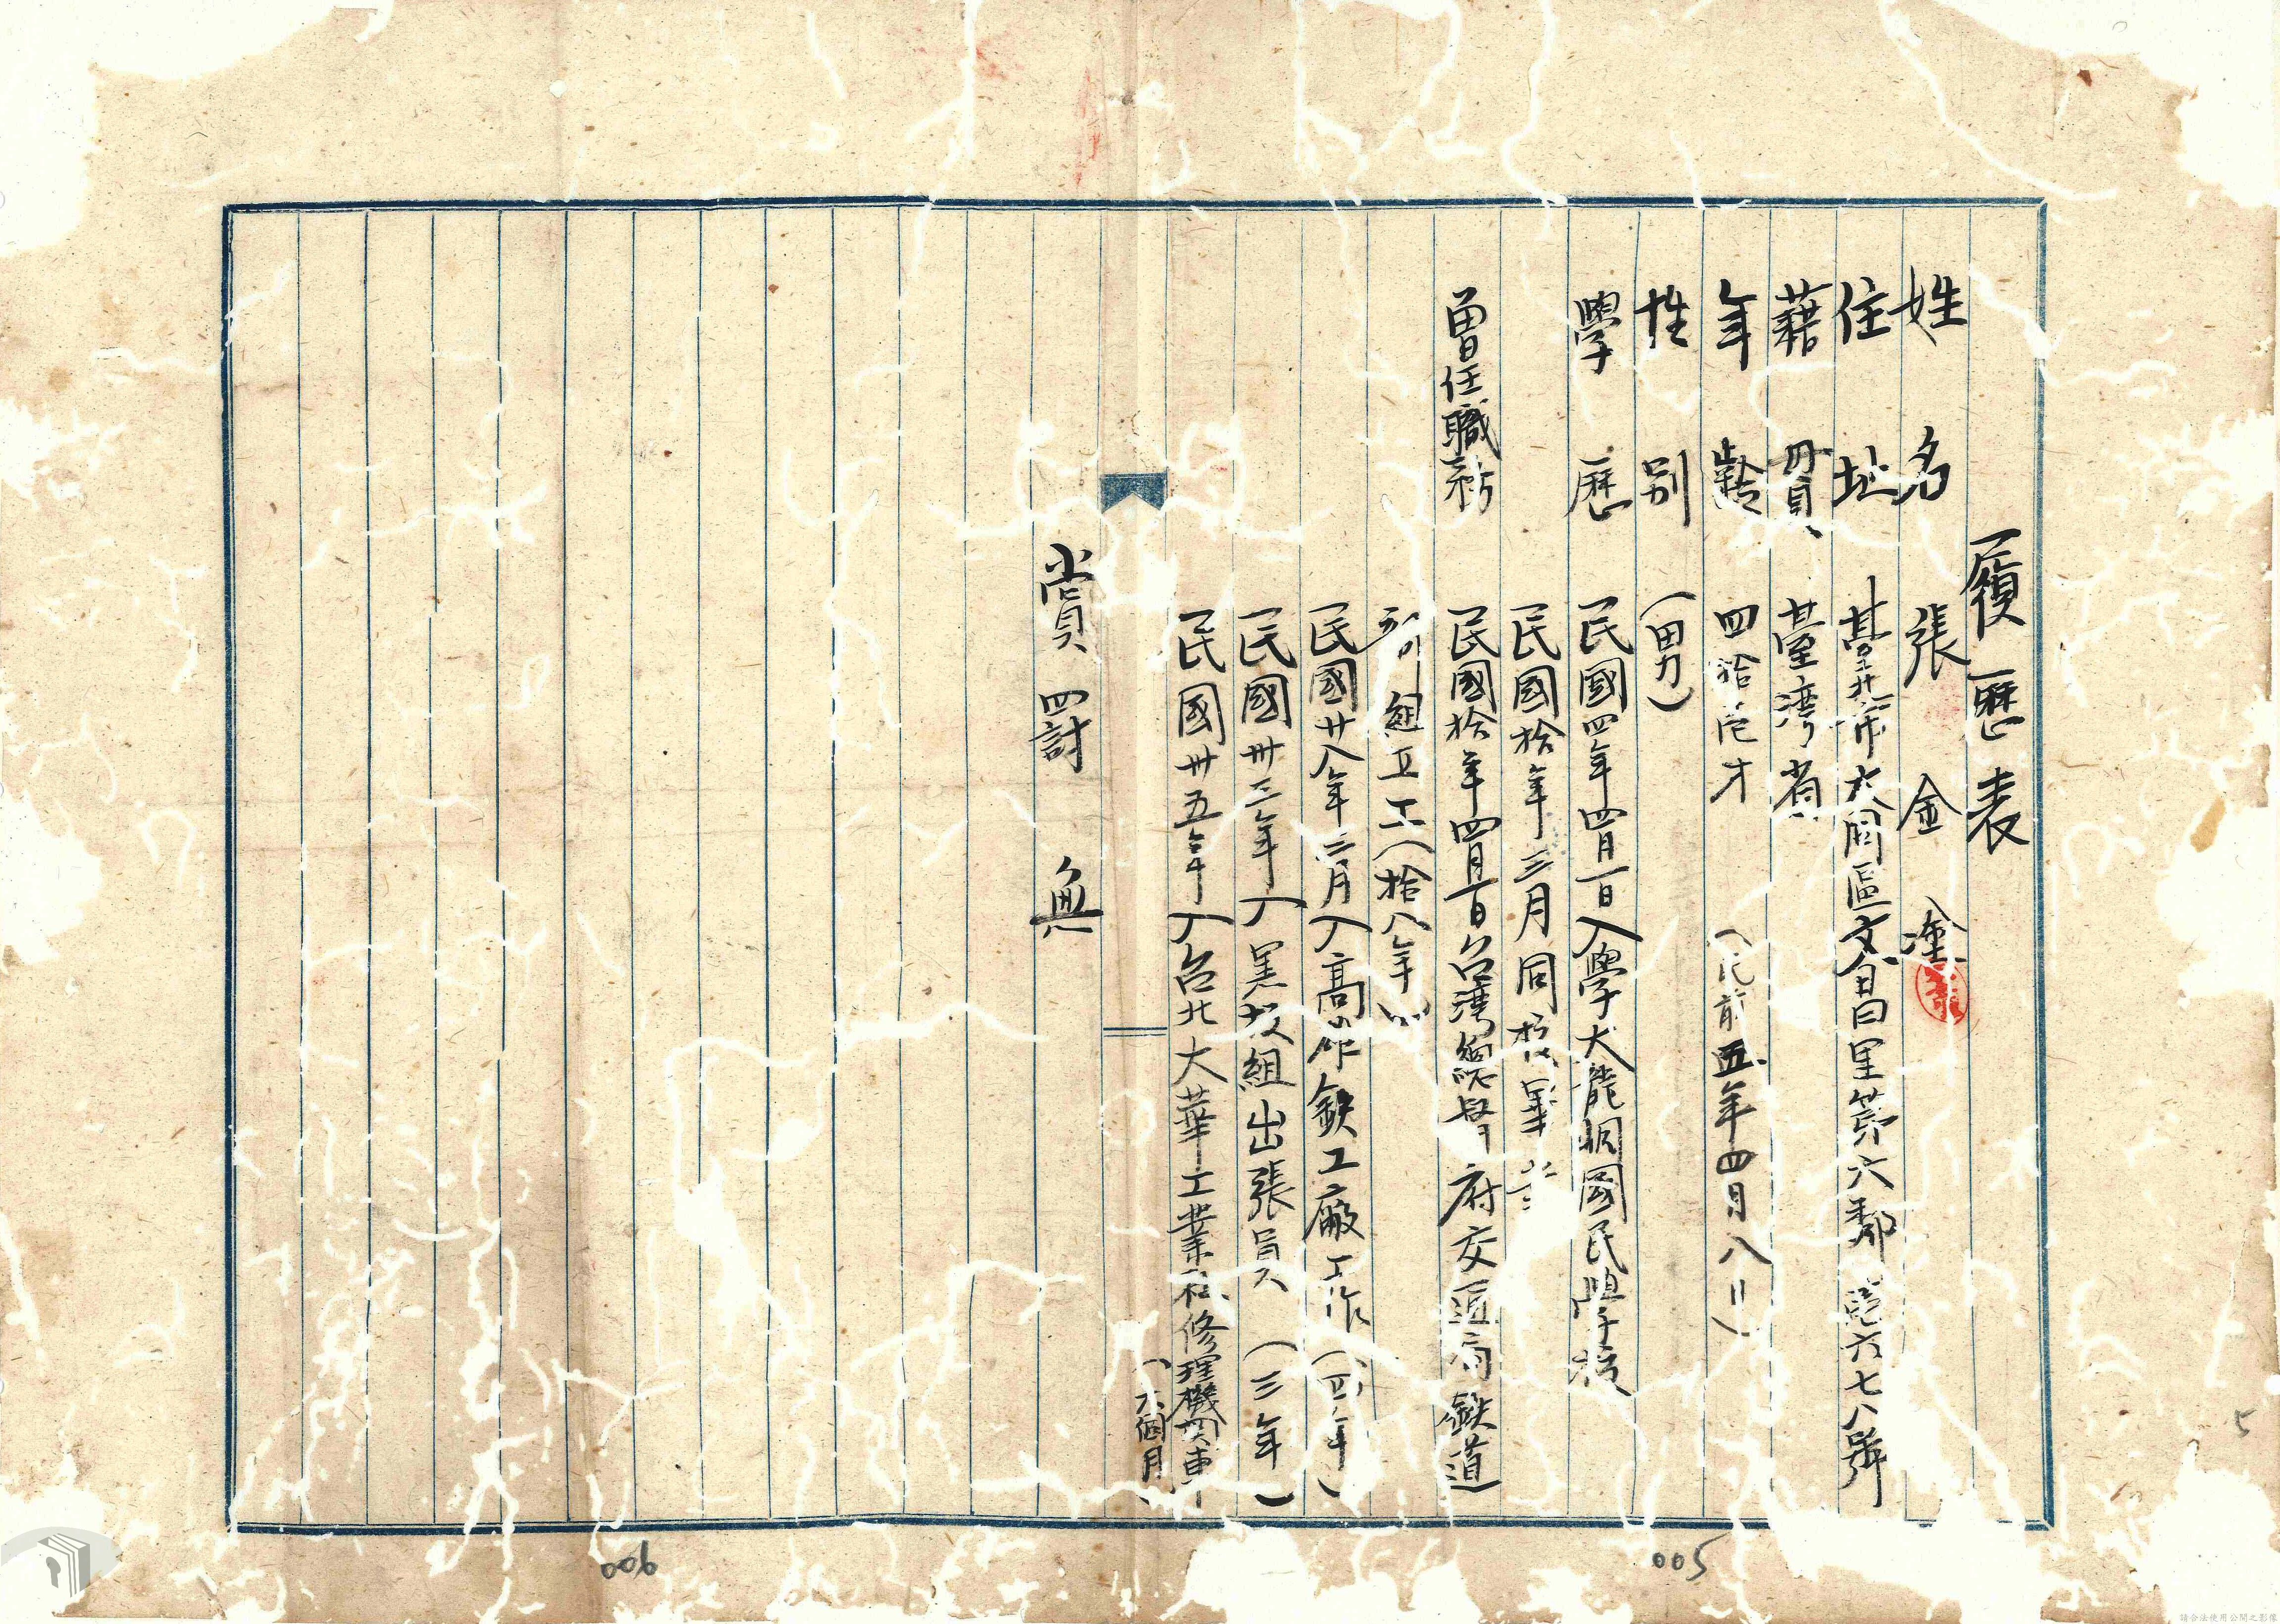 履歷表
姓名 張金塗
住址 臺北市大同區文昌里第六鄰 六七八號
藉貫 臺灣省
年齡 四拾 才 (民前五年四月八日)
性別 (男)
學歷 一民國四年四月一日入學大龍峒國民學校
一民國拾年三月同校畢業
曾任職務 一民國拾年四月一日台灣總督府交通局鉄道
組立工(拾八年)
一民國廿八年三月入高 鉄工廠工作(四年)
一民國卅三年入 組出張員 (三年)
一民國卅五年入台北大華工業社修理機関車
(六個月)
賞罰 無
006
005
5
請合法使用公開之影像